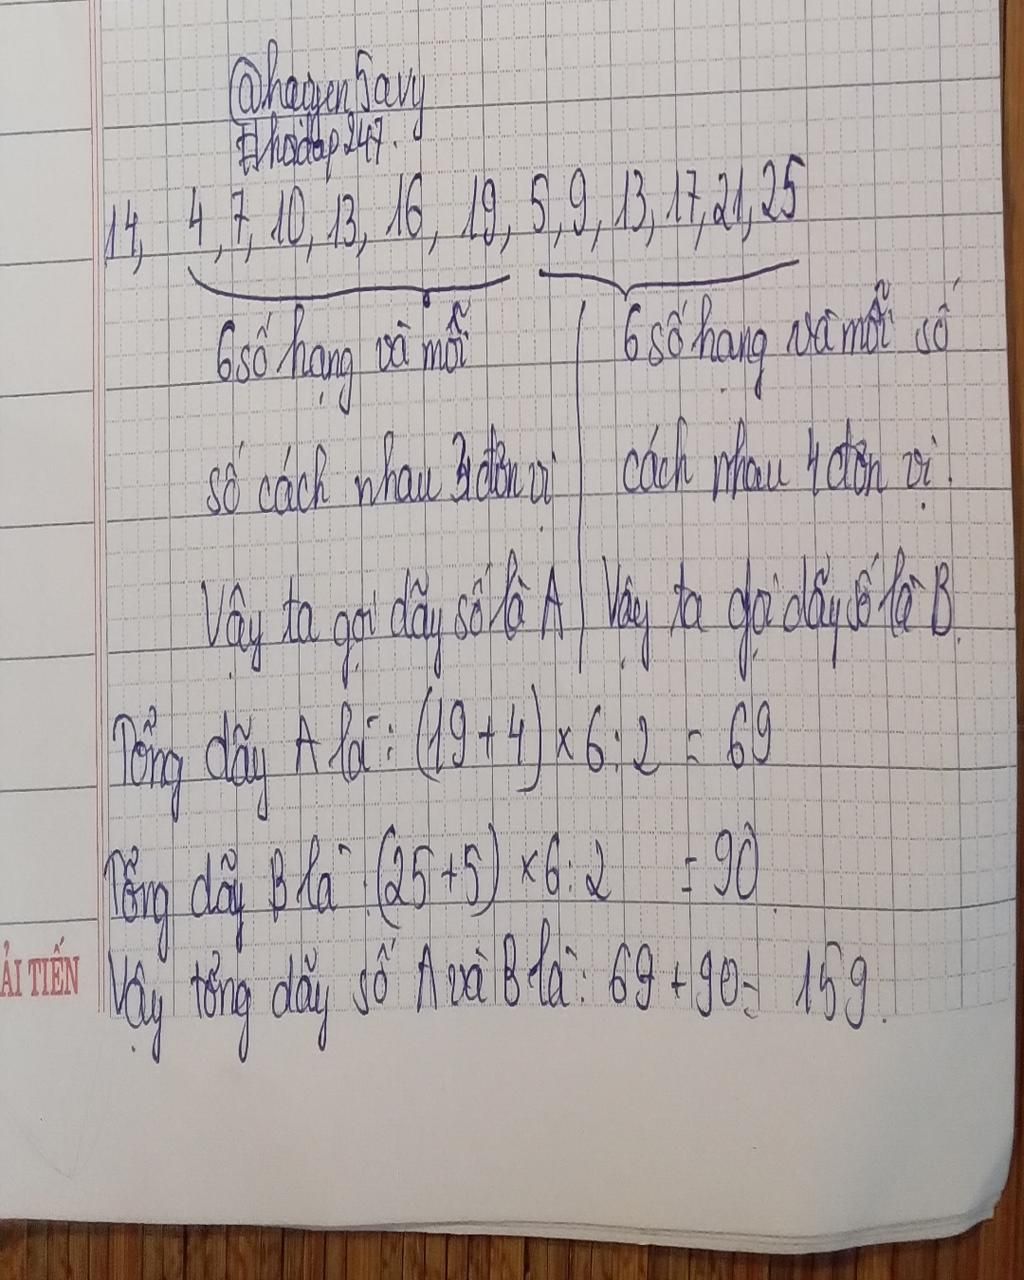 @hagyen5avy
#hoidap247.
14, 4, 7, 10, 13, 16, 19, 5, 9, 13, 17, 21, 25
6 số hạng và mỗi
số cách nhau 3 đơn vị
Vậy ta gọi dãy số là A
6 số hạng và mỗi số
cách nhau 4 đơn vị.
Vậy ta gọi dãy số là B.
Tổng dãy A là: (19 + 4) × 6 : 2 = 69
Tổng dãy B là: (25 + 5) × 6 : 2 = 90
Vậy tổng dãy số A và B là: 69 + 90 = 159.
ẢI TIẾN